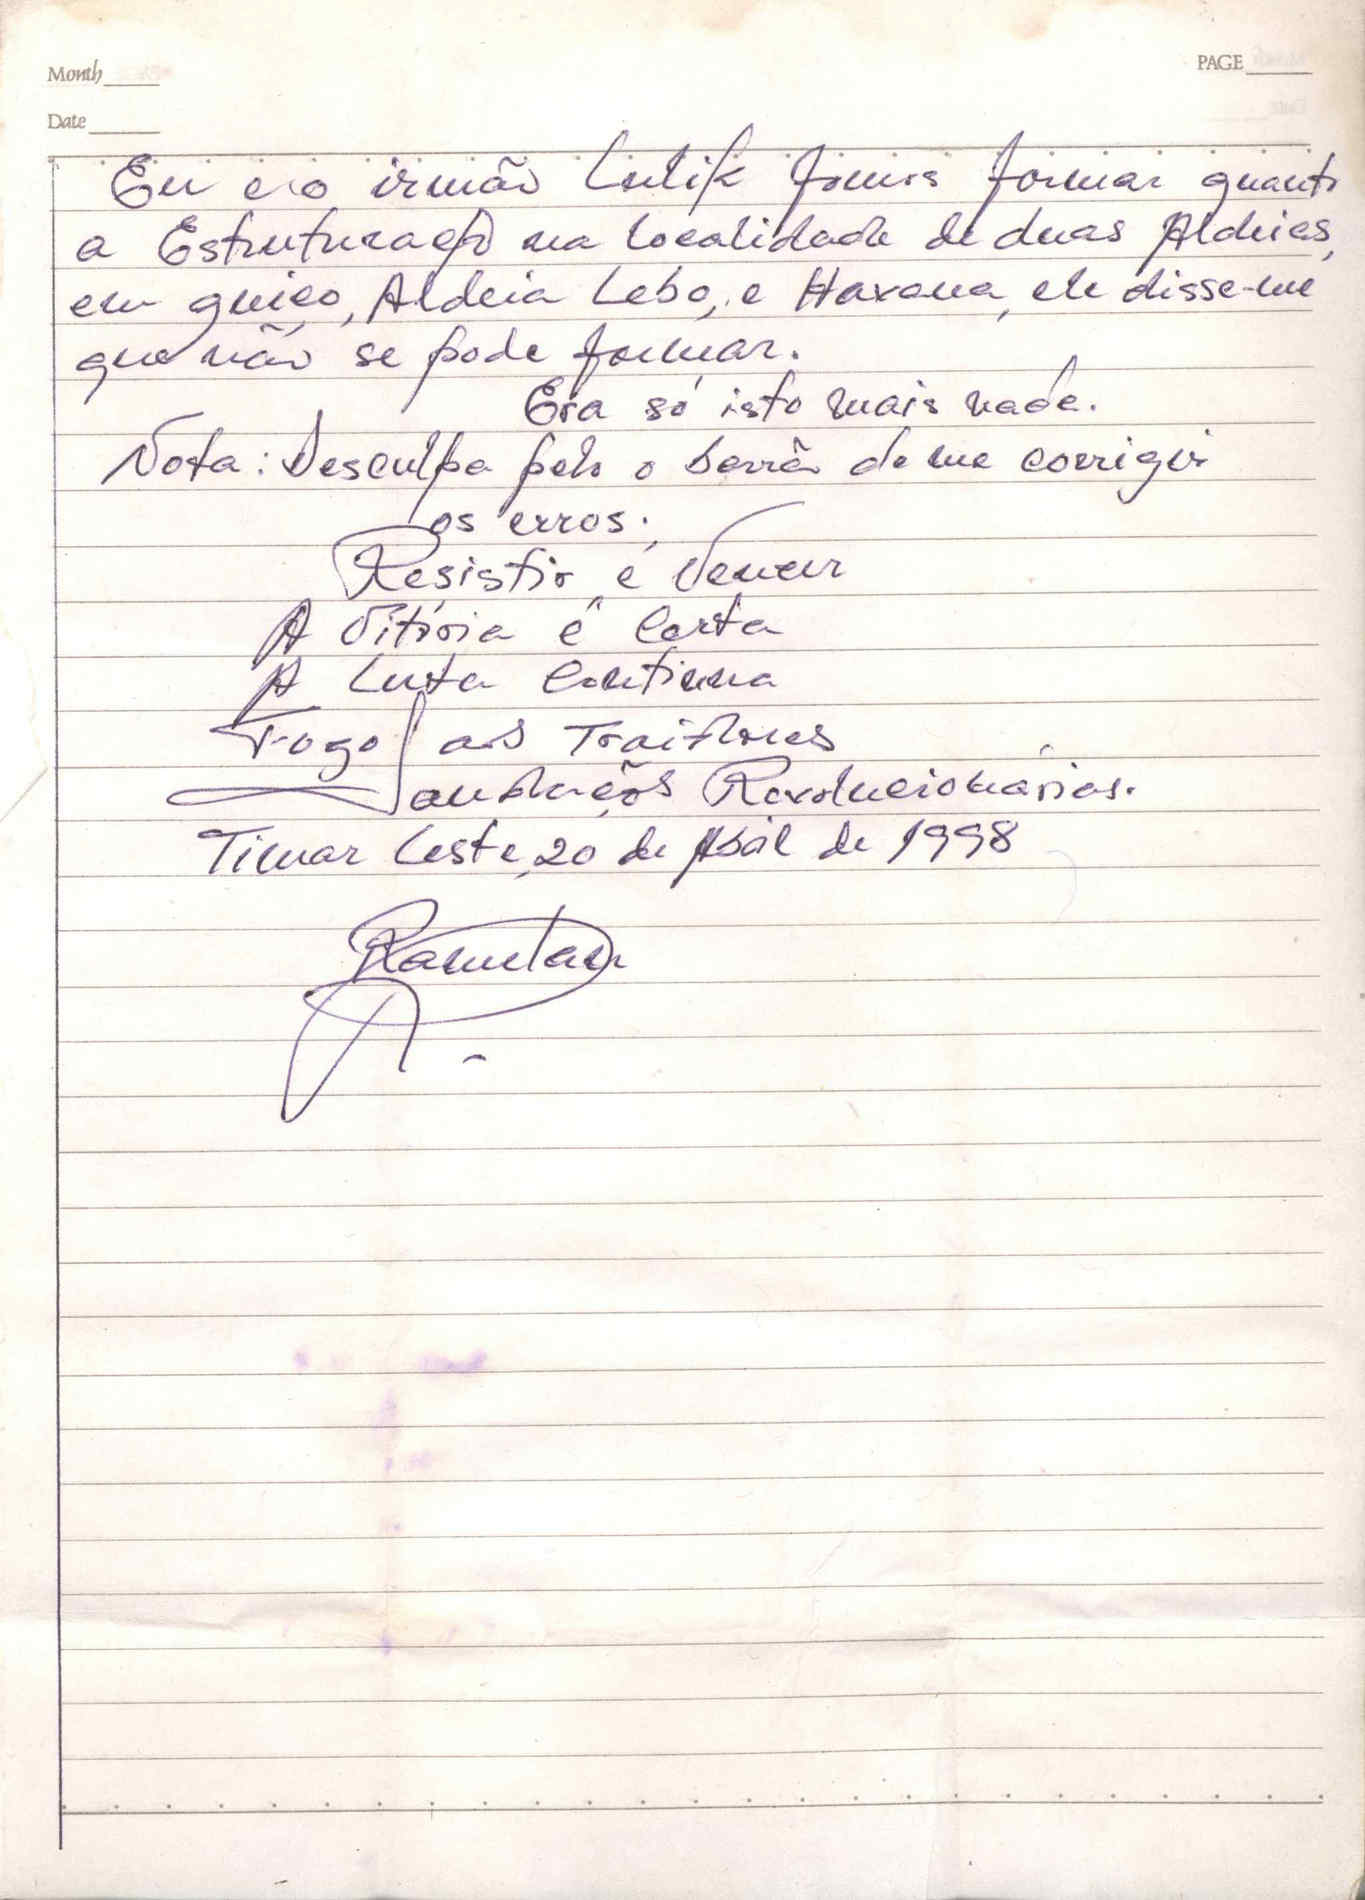 Month
PAGE
Date
Eu e o irmão Lulik fomos formar quanto
a Estruturação na localidade de duas Aldeias,
em quiço, Aldeia Lebo, e Havana, ele disse-me
que não se pode formar.
Era só isto mais nada.
Nota: Desculpa pelo o de me corrigir
os erros;
Resistir é Vencer
A Vitória é Certa
A Luta Continua
Fogo aos Traidores
Saudações Revolucionárias.
Timor Leste, 20 de Abril de 1998